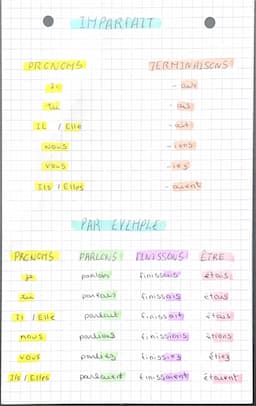 IMPARFAIT
PRONOMS TERMINAISONS
je - ais
tu - ais
IL / Elle - ait
NOUS - ions
VOUS - iez
ILs / Elles - aient
PAR EXEMPLE
PRONOMS PARLONS FINISSONS ÊTRE
je parlais finissais étais
tu parlais finissais étais
Il / Elle parlait finissait
nous parlions finissions étions
vous parliez finissiez étiez
Ils / Elles parlaient finissaient étaient